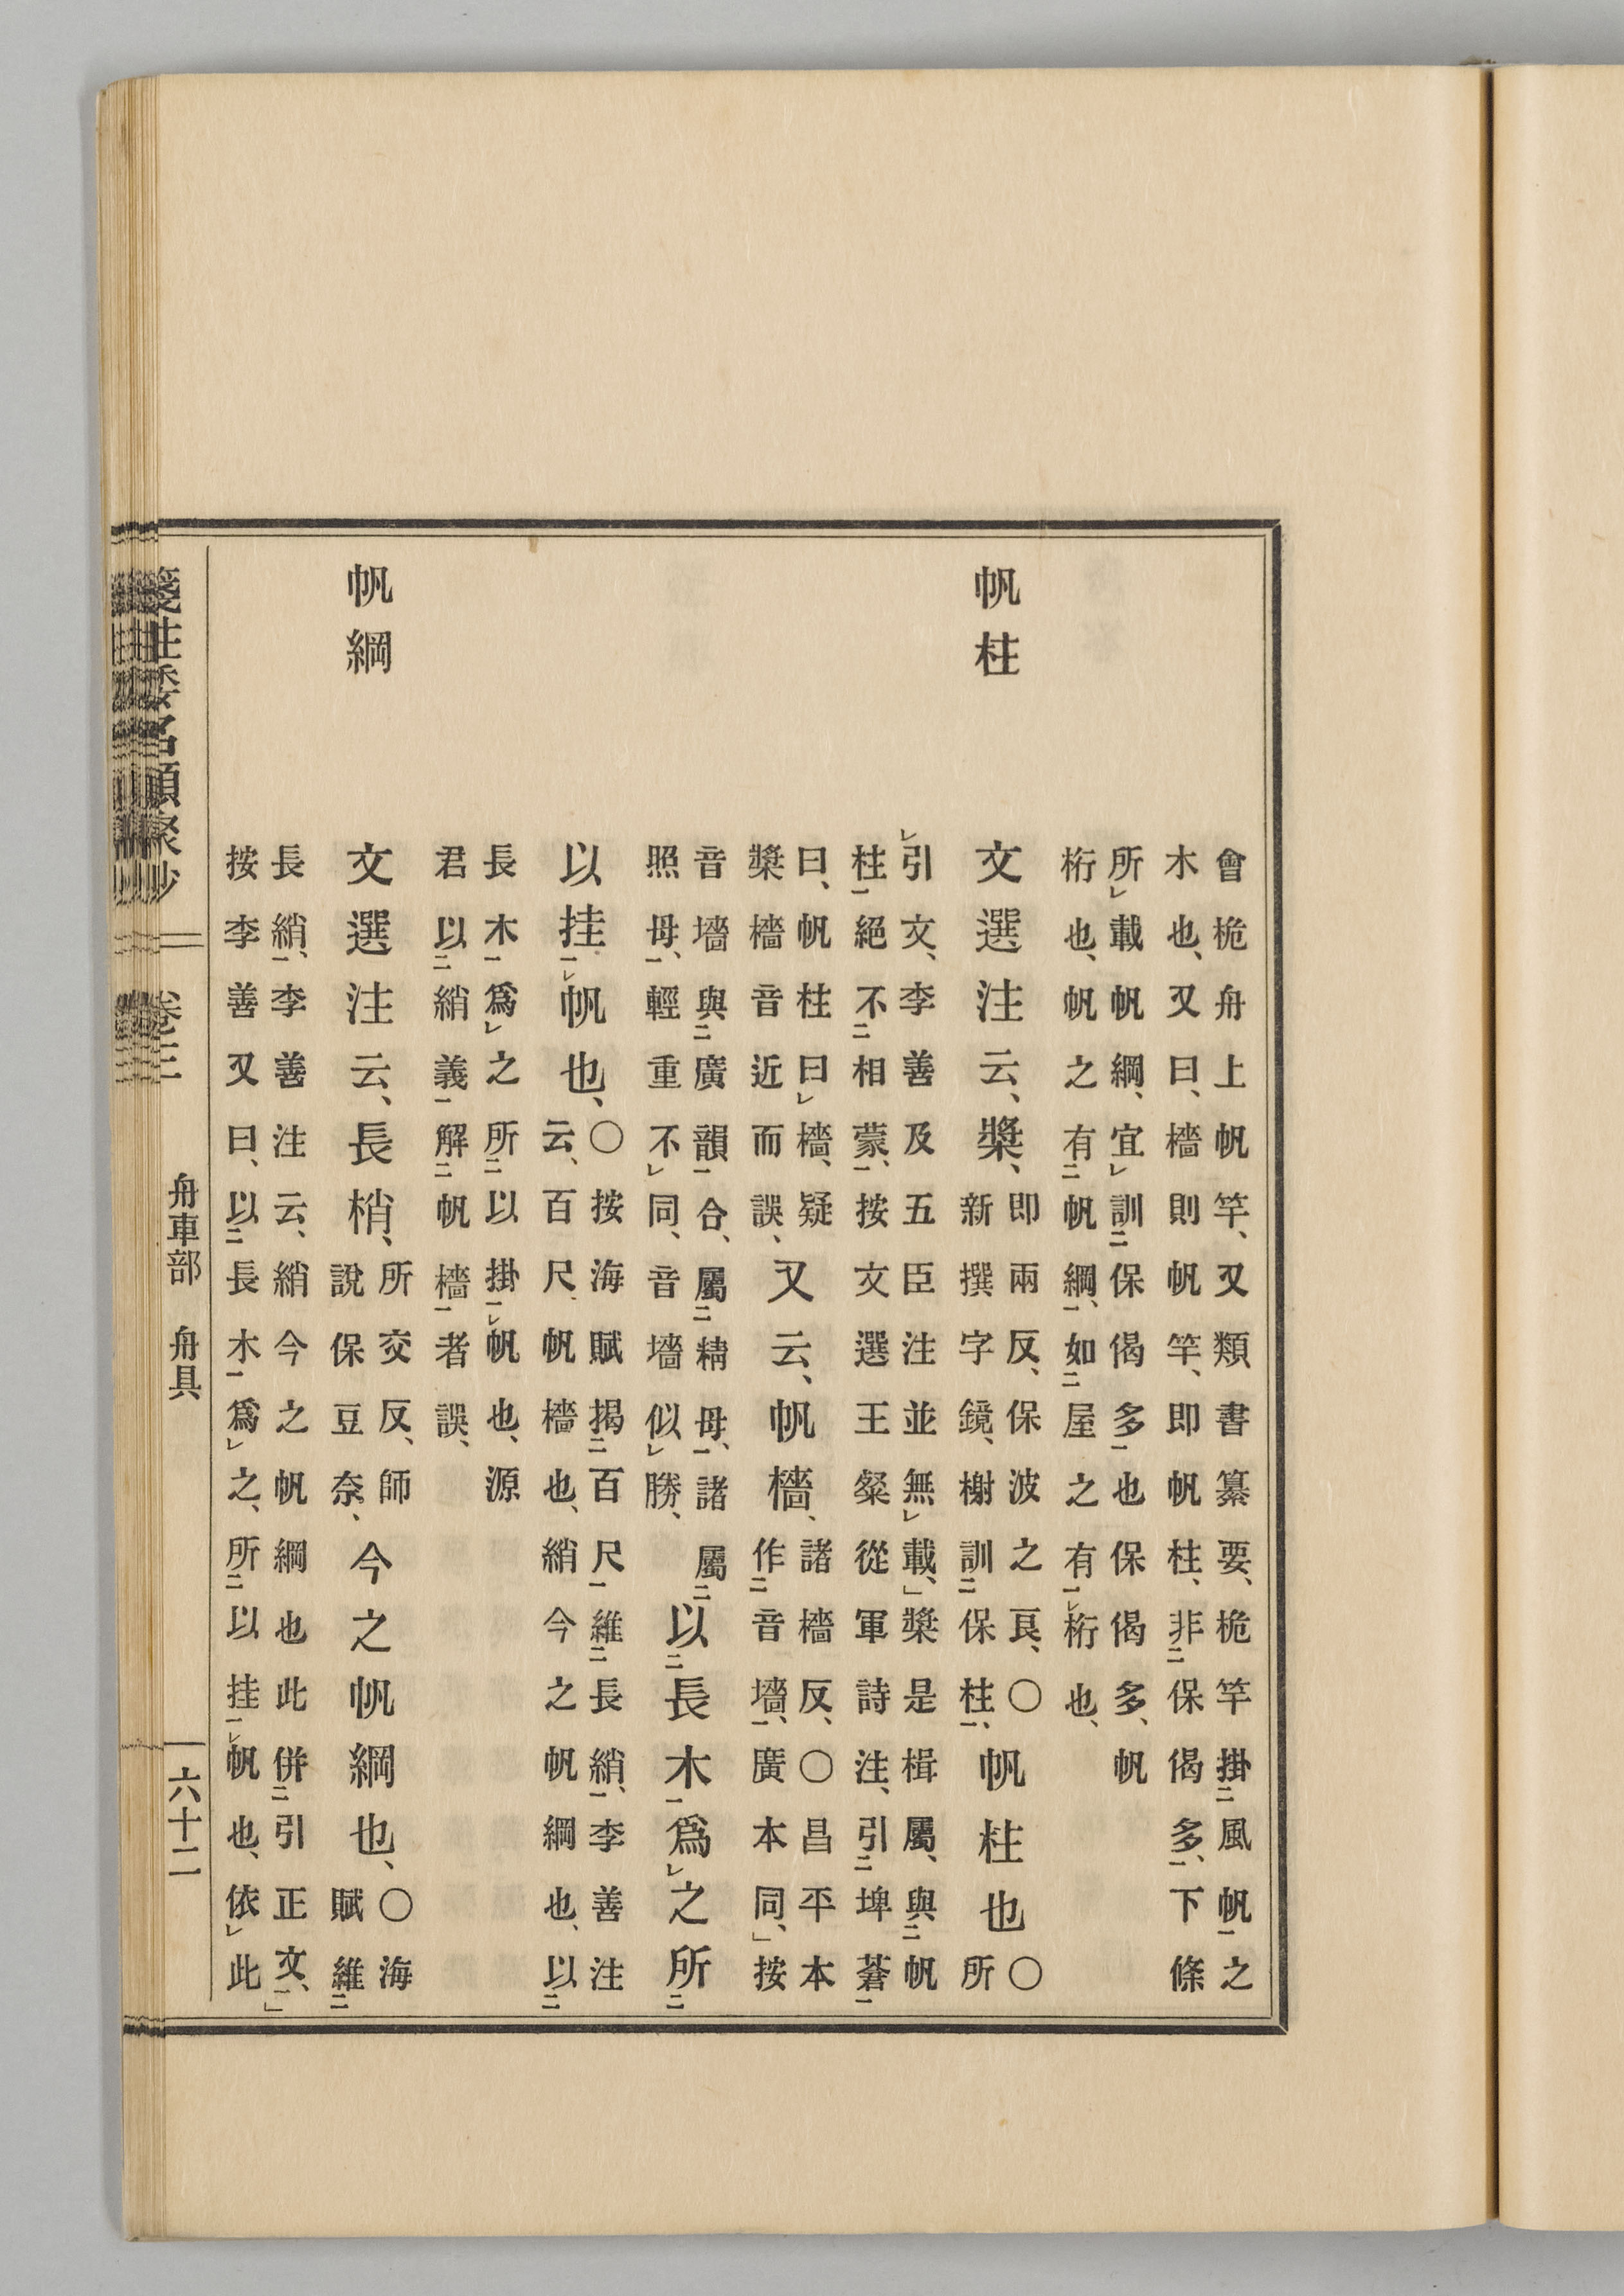 會桅舟上帆竿、又類書纂要、桅竿掛二風帆一之
木也、又曰、檣則帆竿、即帆柱、非二保偈多一、下條
所レ載帆綱、宜レ訓二保偈多一也保偈多、帆
桁也、帆之有二帆綱一、如二屋之有一レ桁也、
帆柱
文選注云、槳、
即兩反、保波之良、〇
新撰字鏡、榭訓二保柱一、
帆柱也
〇
所
レ引文、李善及五臣注並無レ載、」槳是楫屬、與二帆
柱一絕不二相蒙一、按文選王粲從軍詩注、引二埤蒼一
曰、帆柱曰レ檣、疑
槳檣音近而誤、
又云、帆檣、
諸檣反、〇昌平本
作二音墻一、廣本同、」按
音墻與二廣韻一合、屬二精母一、諸屬二
照母一、輕重不レ同、音墻似レ勝、
以二長木一爲レ之所二
以挂一レ帆也、
〇按海賦揭二百尺一維二長綃一、李善注
云、百尺、帆檣也、綃今之帆綱也、以二
長木一爲レ之所二以掛一レ帆也、源
君以二綃義一解二帆檣一者誤、
帆綱
文選注云、長梢、
所交反、師
說保豆奈、
今之帆綱也、
〇海
賦維二
長綃一、李善注云、綃今之帆綱也此併二引正文一、」
按李善又曰、以二長木一爲レ之、所二以挂一レ帆也、依レ此
箋注倭名類聚抄 卷三 舟車部 舟具 六十二